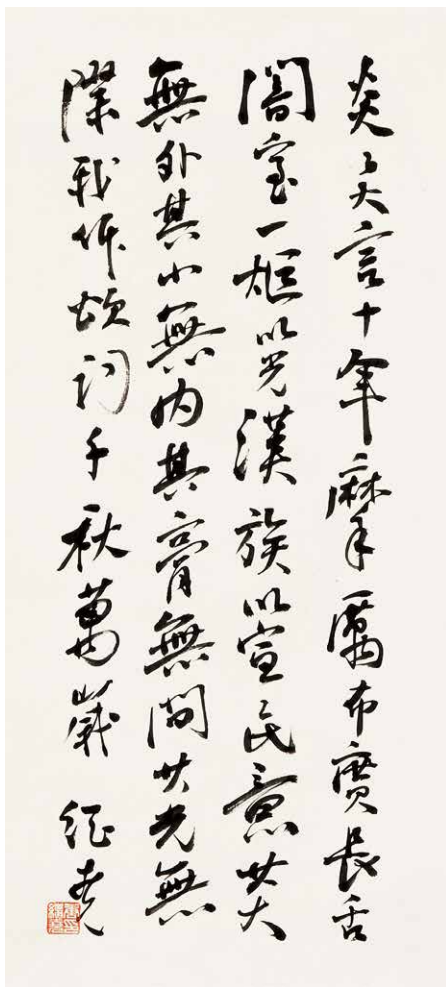 炎々大言十年摩厲布廣長舌
闇室一炬以光漢族以宣民意其大
無外其小無内其膏無間其光無
際我作頌詞千秋萬歲 繼堯